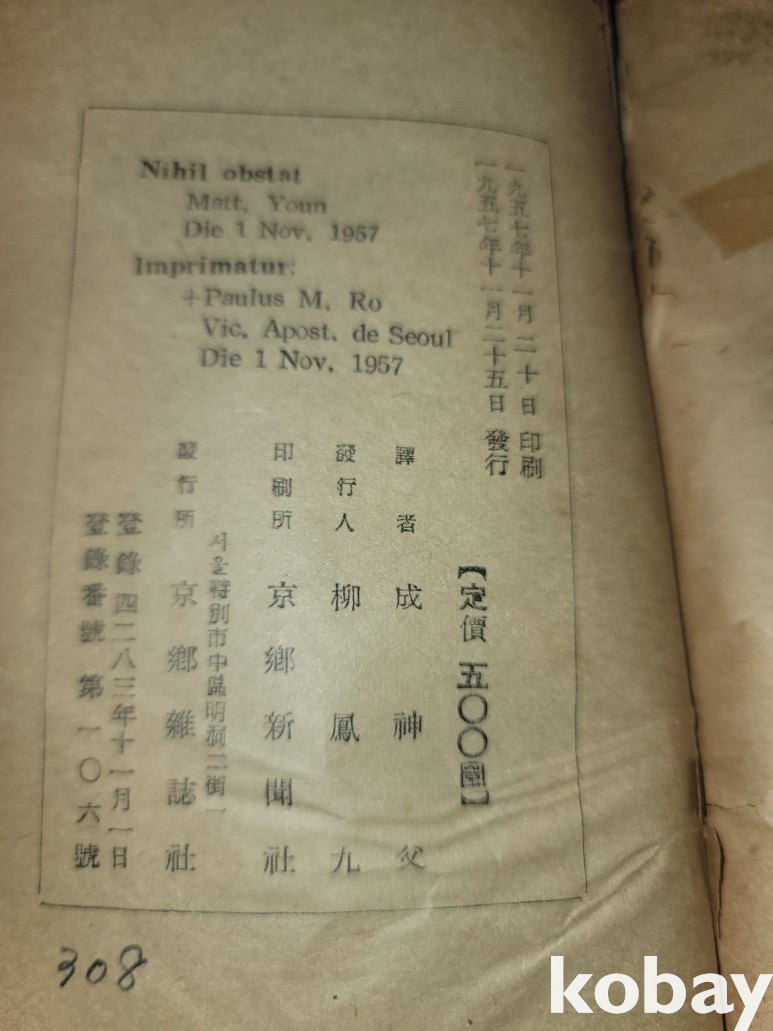 Nihil obstat
Matt. Youn
Die 1 Nov. 1957
Imprimatur:
+Paulus M. Ro
Vic. Apost. de Seoul
Die 1 Nov. 1957
一九五七年十一月二十日 印刷
一九五七年十一月二十五日 發行
【定價 五〇〇圜】
譯者 成神父
發行人 柳鳳九
印刷所 京鄕新聞社
서울特別市中區明洞二街一
發行所 京鄕雜誌社
登錄 四二八三年十一月一日
登錄番號 第一〇六號
308
kobay